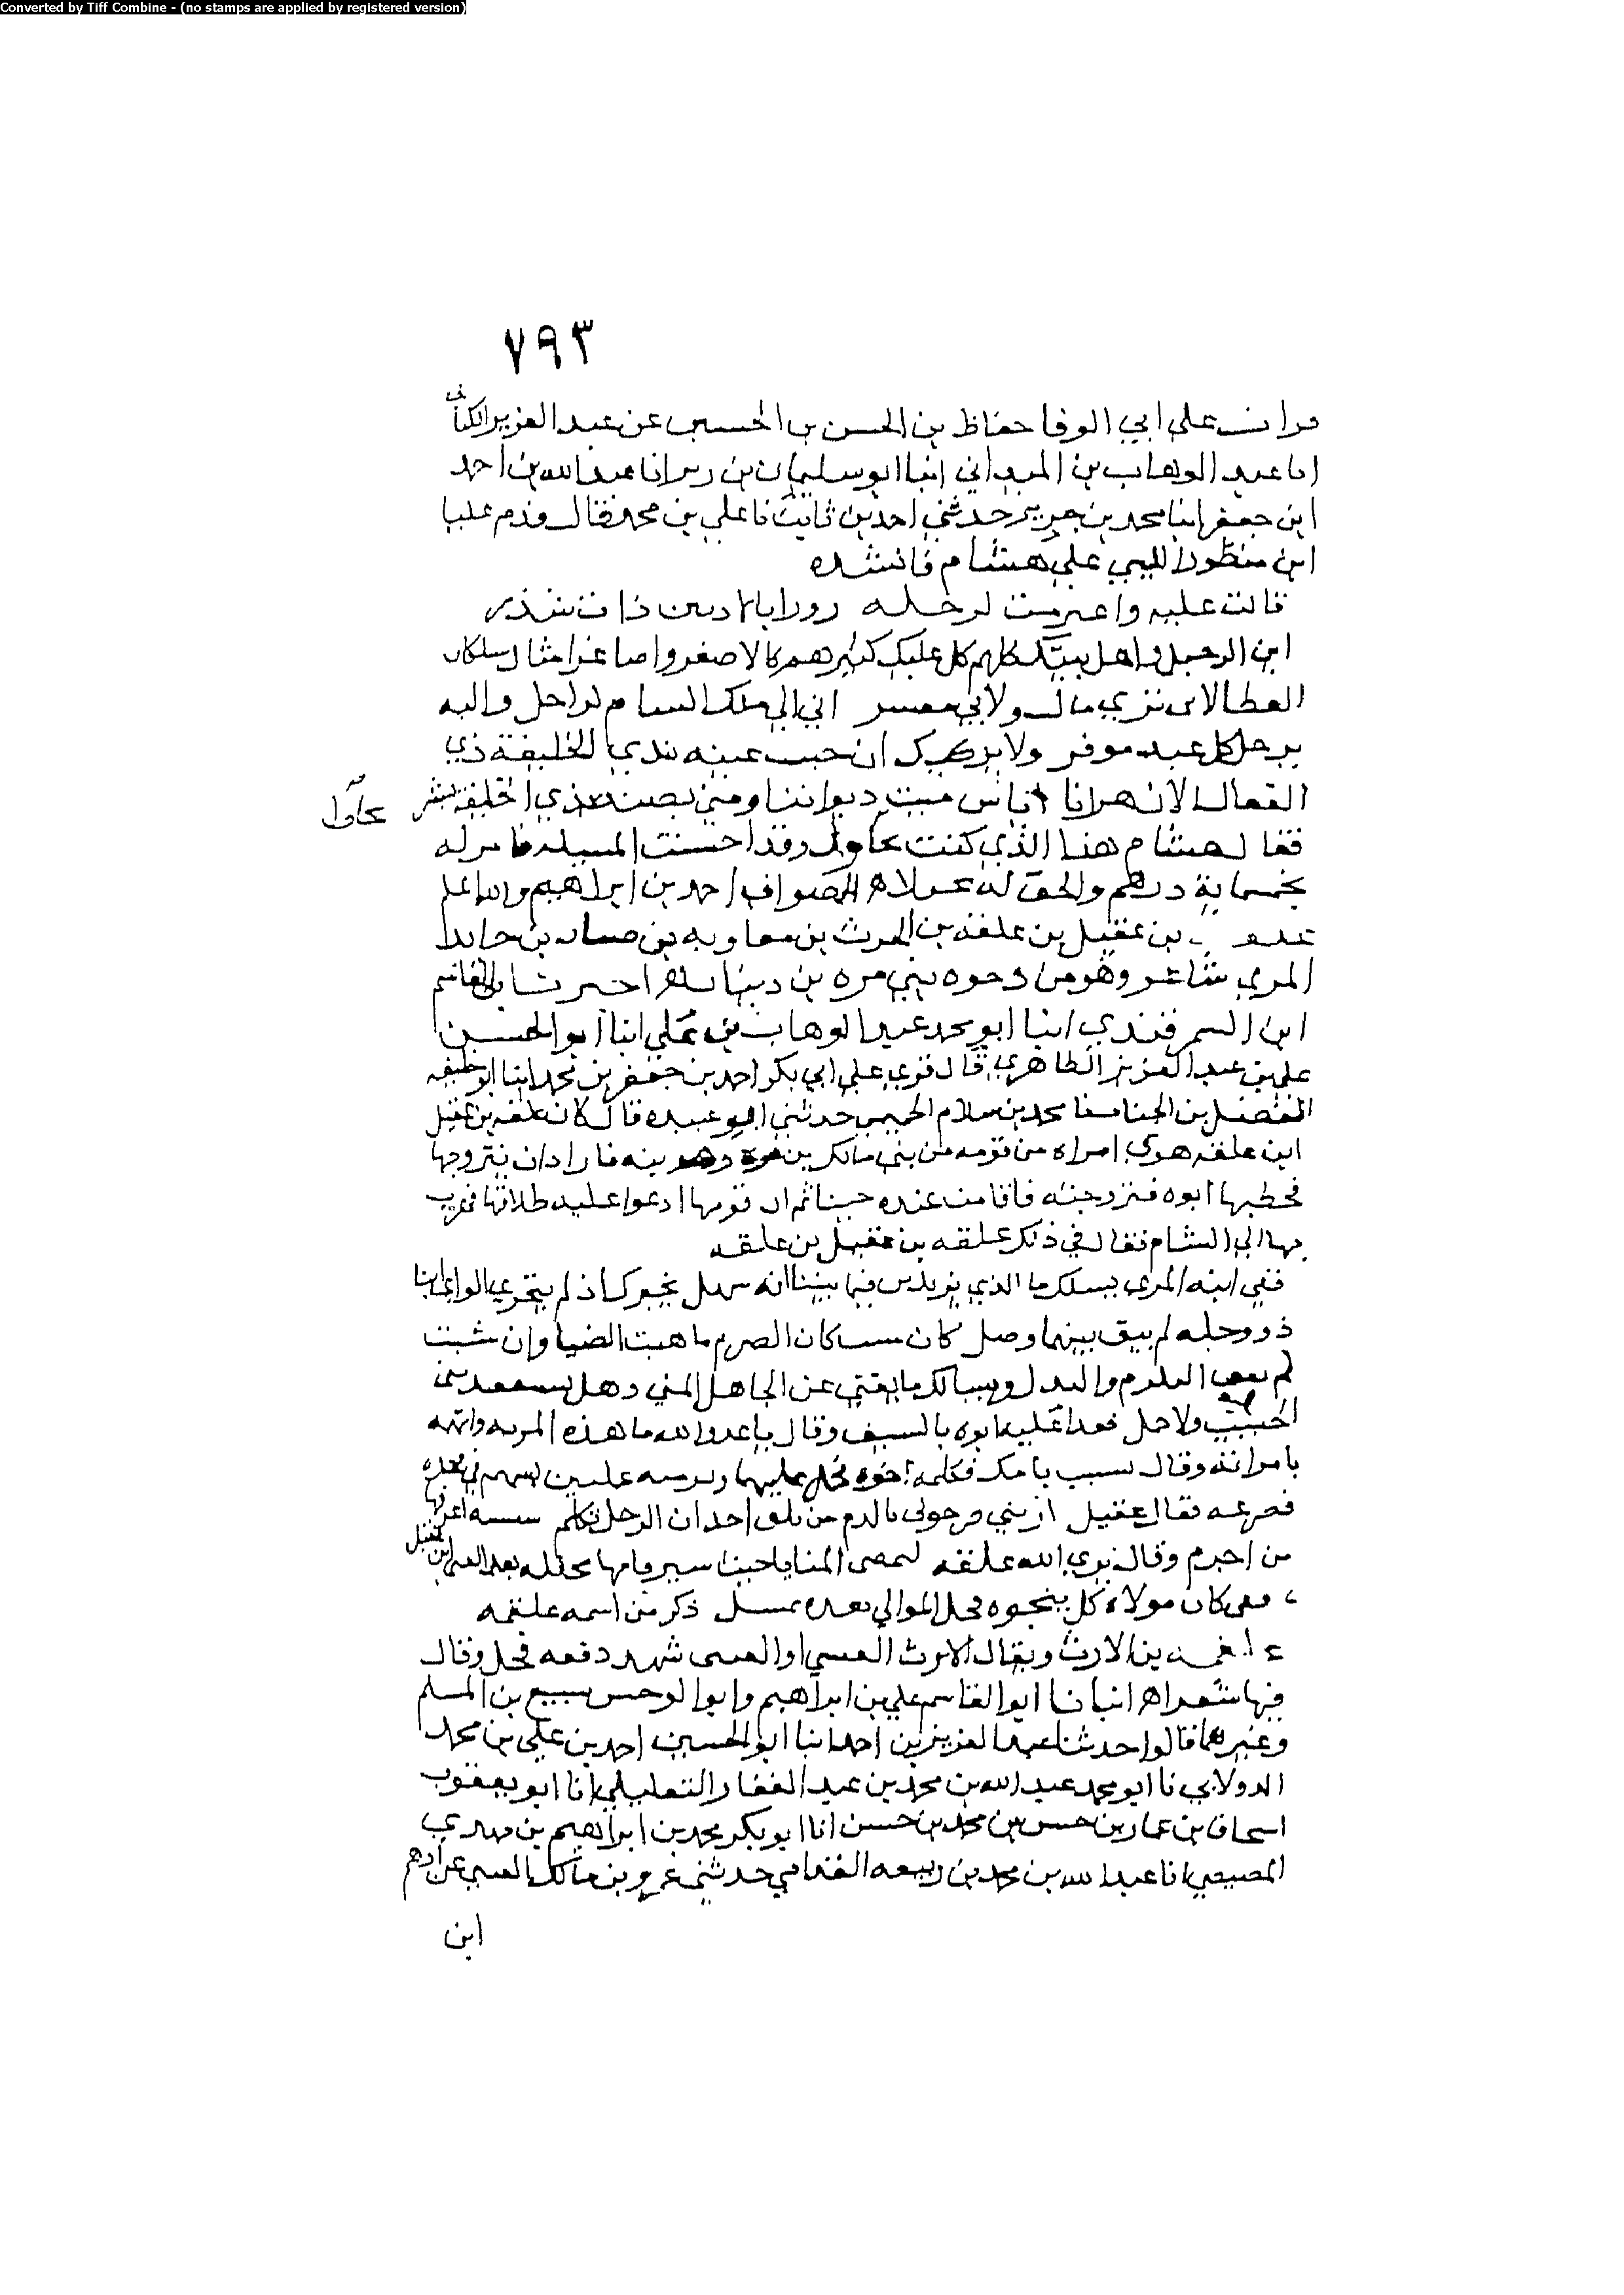 Converted by Tiff Combine - (no stamps are applied by registered version)
٧٩٣
قرات على ابي الوفا حفاظ بن الحسن بن الحسين عن عبد العزيز الكتاني
انا عبد الوهاب بن الميداني انبا ابو سليمان بن زبر انا عبد الله بن احمد
ابن جعفر انبا محمد بن جرير حدثني احمد بن ثابت نا علي بن محمد قال وقدم علبا
ابن منظور الليثي على هشام فانشده
قالت عليه واعترمت لرحله زورا بالادنين ذات تشذر
اين الرحيل واهل بيتك كلهم كل عليك كبيرهم كالاصغر واصاغر امثال سلكان
العطا لا في ثري مال ولا في معسر اني الى ملك الشام لراحل واليه
يرحل كل عبد موفر ولا تركنك ان حييت عينه بندي الخليفة ذي
الفعال الازهر انا اناس ميت ديواننا ومتى يصبه ندي الخليفة ينشر
محاولا
فقال هشام هذا الذي كنت تحاول وقد احسنت المسله فامر له
بخمسماية درهم والحق له عيلا في
احمد بن ابراهيم والله اعلم
بن عقيل بن علفه بن الحرث بن معاويه بن ضباب بن جابر
المري شاعر وهو من وجوه بني مره بن اخبرنا ابو القاسم
ابن السمرقندي انبا ابو محمد عبد الوهاب بن علي انبا ابو الحسين
علي بن عبد العزيز الطاهري قال قري على ابي بكر احمد بن جعفر بن محمد انبا ابو خليفه
الفضل بن الحباب نا محمد بن سلام الجمحي حدثني ابو عبيده قال كان علفه بن عقيل
ابن علفه هوي امراه من قومه من بني مالك بن مره وهم بينه فاراد ان يتزوجها
فخطبها ابوه فتزوجته فاقامت عنده حينا ثم ان قومها ادعوا عليه طلاقها فهرب
بها الى الشام فقال في ذلك علقه بن عقيل بن علقه
قفي ابنه المري نسلك ما الذي تريدين فيما بيننا انه سهل نخبرك اذ لم تنجزي الواي اننا
ذوو حله لم يبق بينهما وصل كان الصرم ما هبت الصبا وان شئت
لم يفن التلوم والبذل ويسالك ما يغني عن الجاهل المني وهل
الخبيث ولا حل فعدا عليه ابوه بالسيف وقال يا عدو الله ما هذه المريه واتهمه
بامراته وقال تسبب بامك فكلمه اخوه فحمل عليهما بسهم في فخذه
فصرعه فقال عقيل ان بني ضرجوني بالدم من يلق احدان الرجال يكلم شنشنه اعرفها
من اخزم وقال يري الله علقه لتمض المنايا حيث سير فانها محلله بعد الفتى ابن عقيل
فتى كان مولاه يحل بنجوه فحل الموالي بعده بمسيل ذكر من اسمه علقمه
علقمه بن الارث ويقال الارت العبسي او القيسي شهد وقعه فحل وقال
فيها شعرا انبانا ابو القاسم علي بن ابراهيم وابو الوحش سبيع بن المسلم
وغيرهما قالوا حدثنا عبد العزيز بن احمد انبا ابو الحسين احمد بن علي بن محمد
الدولابي نا ابو محمد عبد الله بن محمد بن عبد الغفار البعلبكي انا ابو يعقوب
اسحاق بن عمار بن حبيش بن محمد بن حبيش انا ابو بكر محمد بن ابراهيم بن مهدي
المصيصي انا عبد الله بن محمد بن ربيعه القدامي حدثني عمرو بن مالك العبسي عن ادهم
ابن